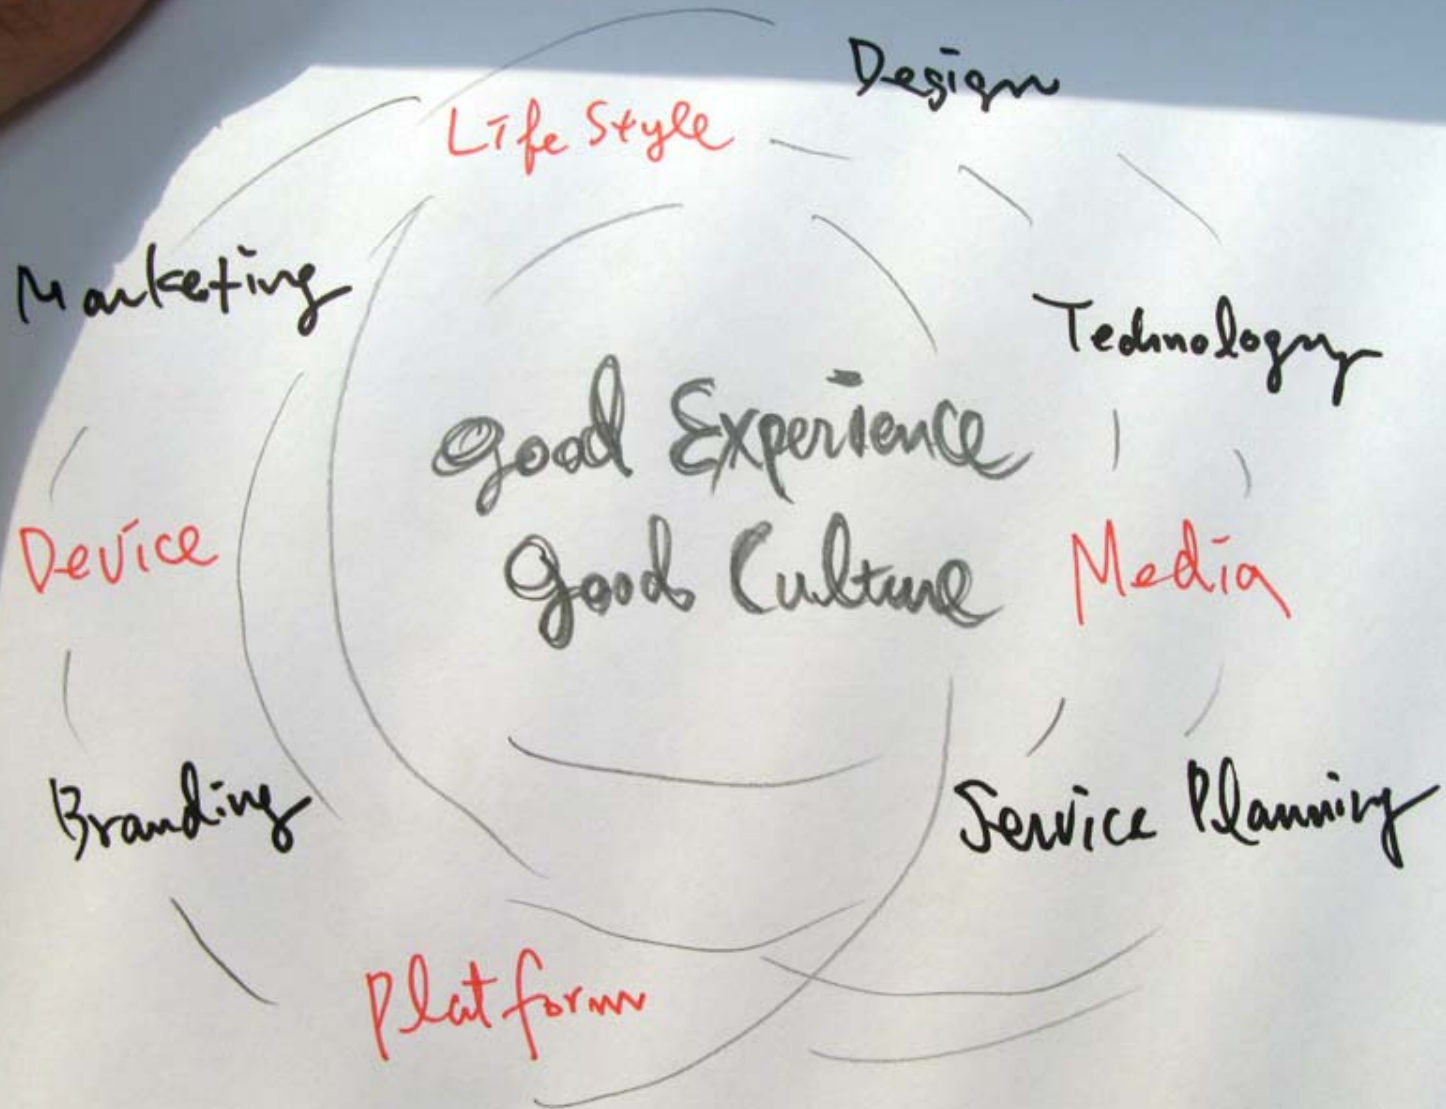 Design
Life Style
Marketing
Technology
Good Experience
Good Culture
Device
Media
Branding
Service Planning
Platform